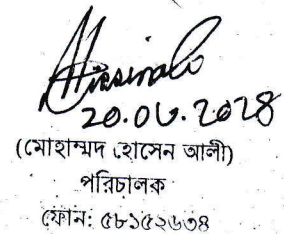 20.06.2028
(মোহাম্মদ হোসেন আলী)
পরিচালক
ফোন: ৫৮১৫২৬৩৪